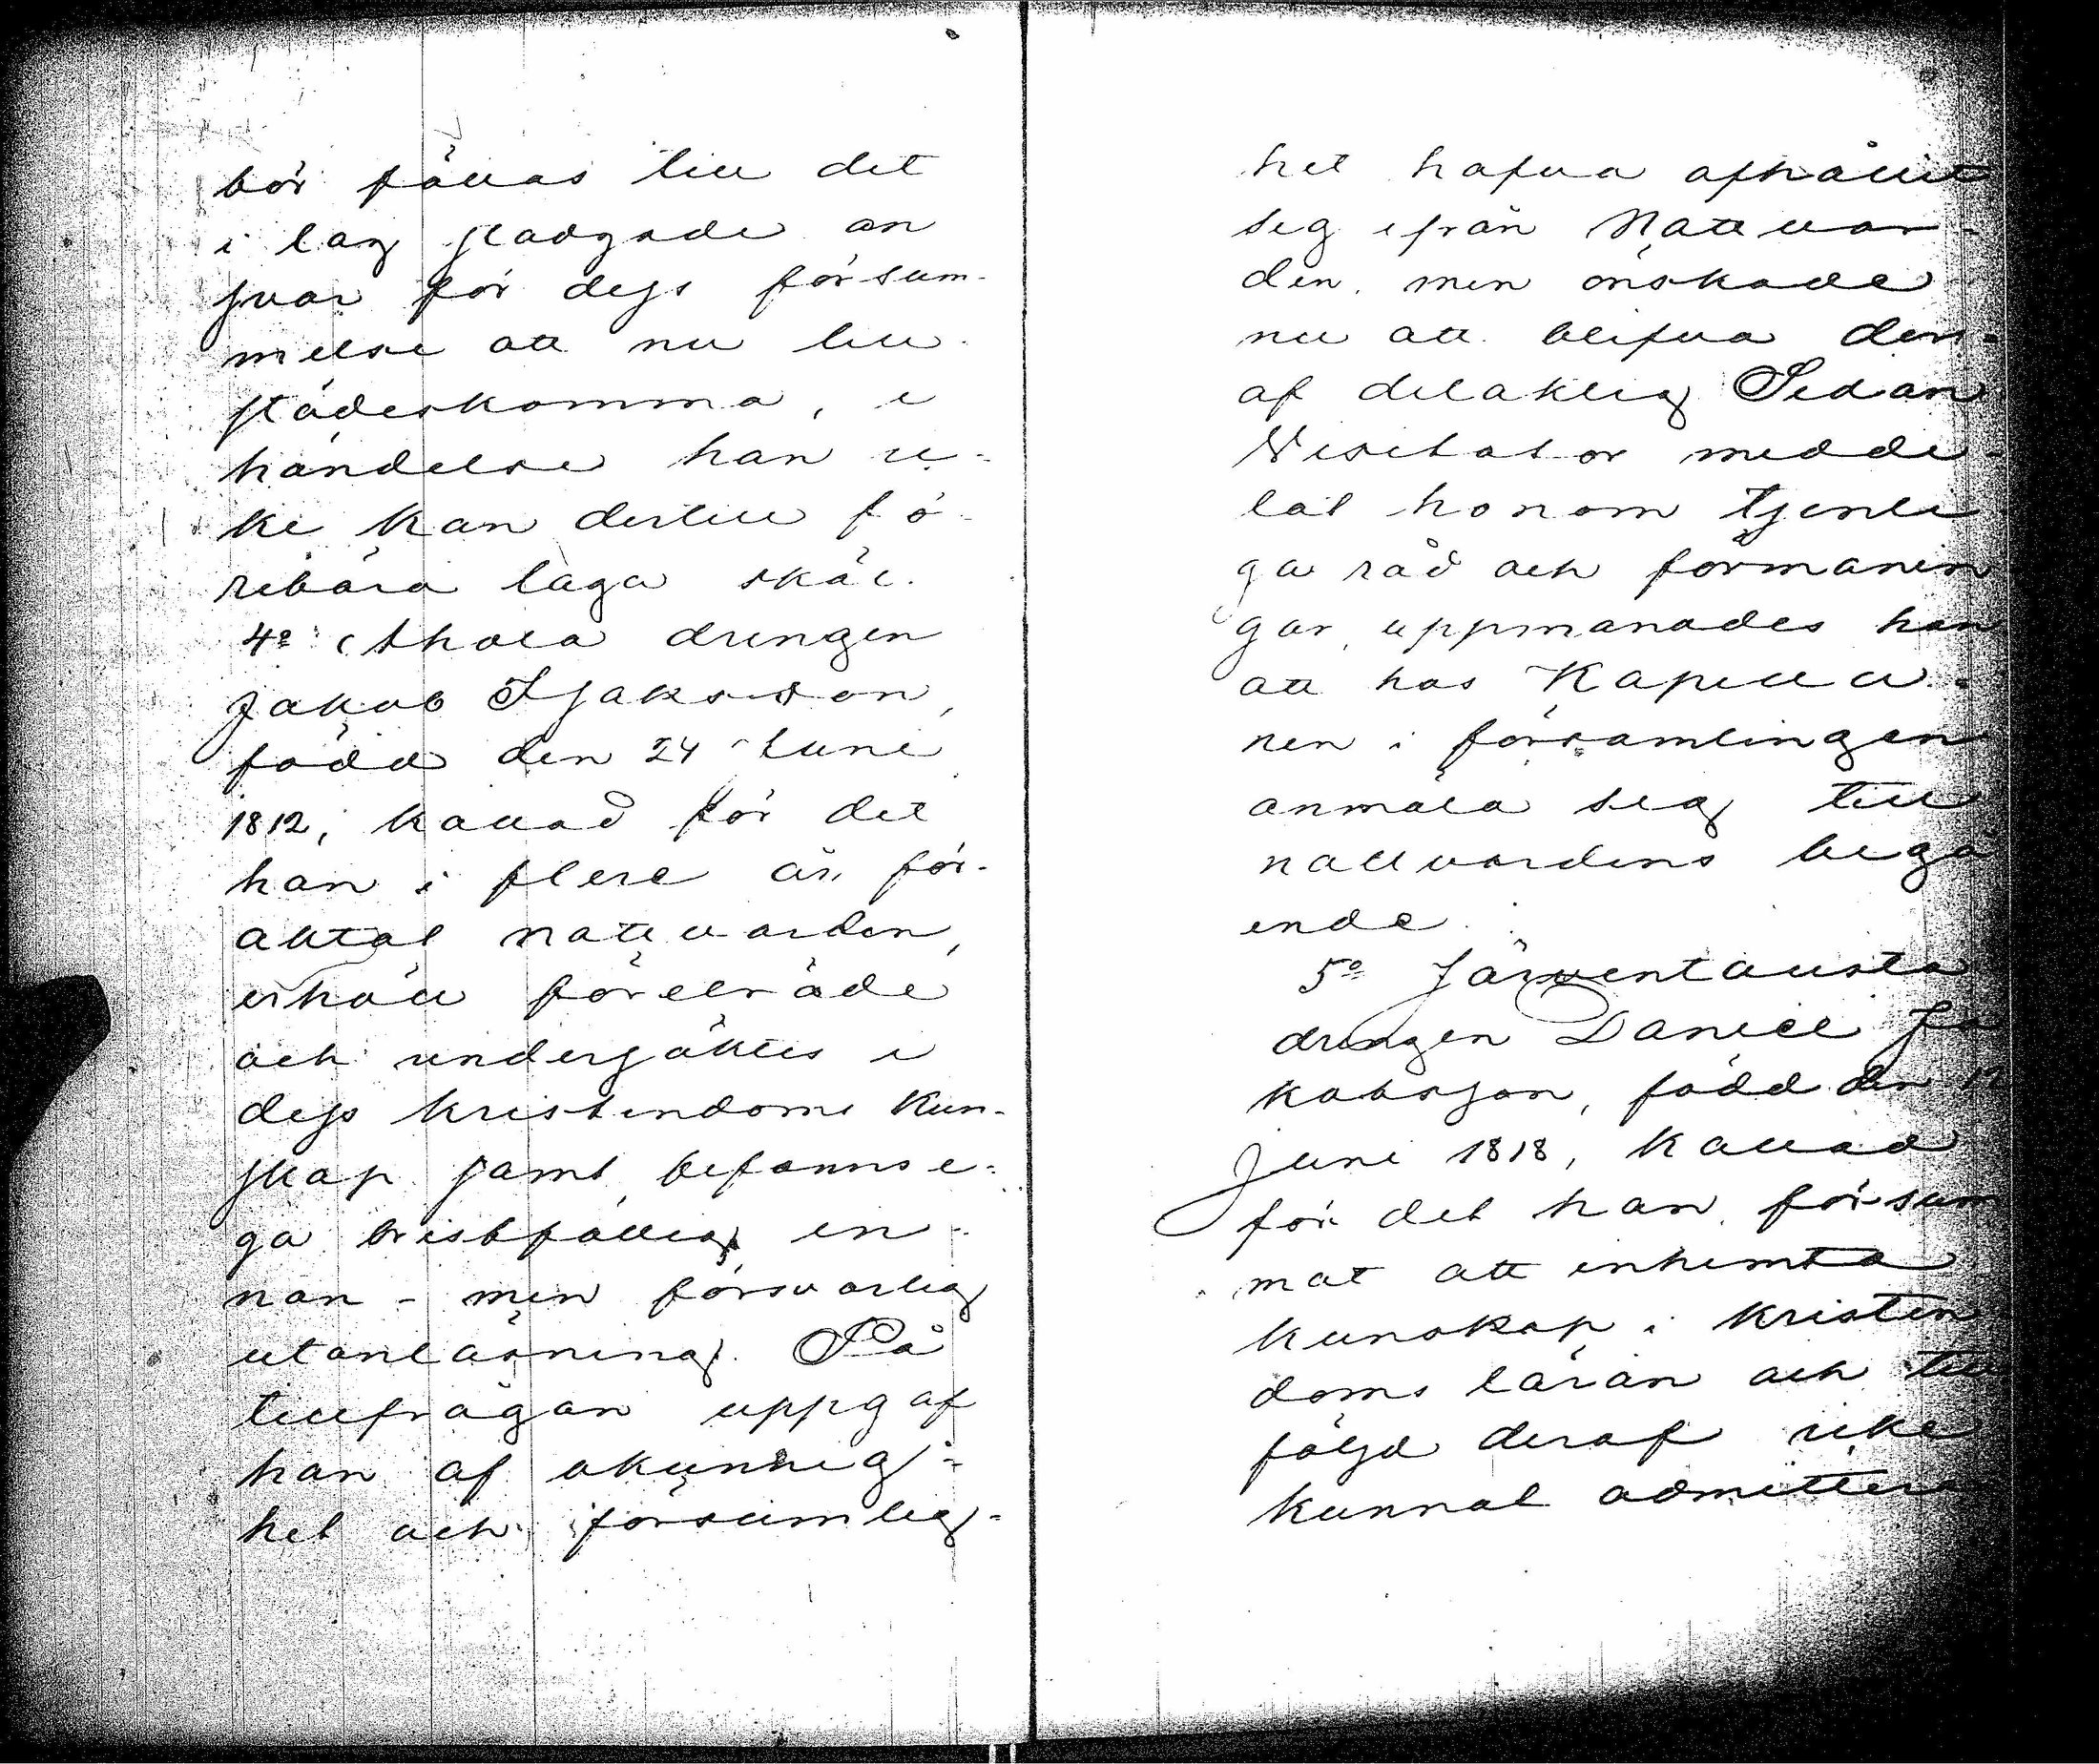 bör fällas till det
i lag stadgade an
svar för dess försum-
melse att nu till
städeskomma, i
händelse han ic-
ke kan dertill fö-
rebära laga skäl.
4o Ahola drengen
Jakob Isaksson,
född den 24 Juni
1812, kallad för det
han i flere år för-
aktat nattvarden,
erhöll företräde
och undersöktes i
dess kristendoms kun-
skap samt befanns e-
ga bristfällig in-
nan - men försvarlig
utanläsning. På
tillfrågan uppgaf
han af okunnig-
het och försumlig-
het hafva afhållit
sig ifrån Nattvar-
den, men önskade
nu att blifva der-
af delaktig Sedan
Visitator medde-
lat honom tjenli
ga råd och förmanin
gar, uppmanades han
att hos Kapella-
nen i församlingen
anmäla sig till
nattvardens begå
ende.
5o Järventausta
drengen Daniel Ja
kobsson, född den
Juni 1818, kallad
för det han försum
mat att inhemta
kunskap i kristen
doms läran och till
följd deraf icke
kunnat admittera